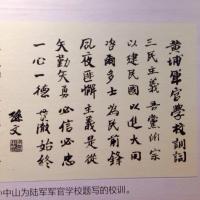 黃埔軍官學校訓詞
三民主義吾黨所宗
以建民國以進大同
咨爾多士為民前鋒
夙夜匪懈主義是從
矢勤矢勇必信必忠
一心一德貫徹始終
孫文
中山为陆军军官学校题写的校训。